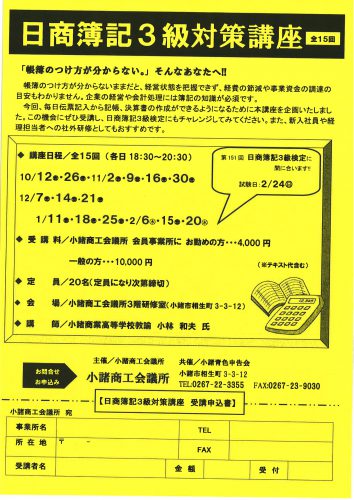 日商簿記3級対策講座 全15回
「帳簿のつけ方が分からない。」そんなあなたへ!!
帳簿のつけ方が分からないままだと、経営状態を把握できず、経費の節減や事業資金の調達の
目安もわかりません。企業の経営や会計処理には簿記の知識が必須です。
今回、毎日伝票記入から記帳、決算書の作成ができるようになるために本講座を企画いたしまし
た。この機会にぜひ受講し、日商簿記3級検定にもチャレンジしてみてください。また、新入社員や経
理担当者への社外研修としてもおすすめです。
◆ 講座日程/全15回 (各日 18:30~20:30)
第151回 日商簿記3級検定に
間に合います!!
試験日:2/24㊐
◆ 受 講 料/小諸商工会議所 会員事業所に お勤めの方・・・4,000 円
一般の方・・・10,000 円
(※テキスト代含む)
◆ 定 員/20名(定員になり次第締切)
◆ 会 場/小諸商工会議所3階研修室(小諸市相生町 3-3-12)
◆ 講 師/小諸商業高等学校教諭 小林 和夫 氏
お問合せ
お申込み
主催/小諸商工会議所 共催/小諸青色申告会
小諸商工会議所
小諸市相生町 3-3-12
TEL:0267-22-3355 FAX:0267-23-9030
【日商簿記3級対策講座 受講申込書】
小諸商工会議所 宛
事業所名
TEL
所 在 地
〒 -
FAX
受講者名
金 額
受 付